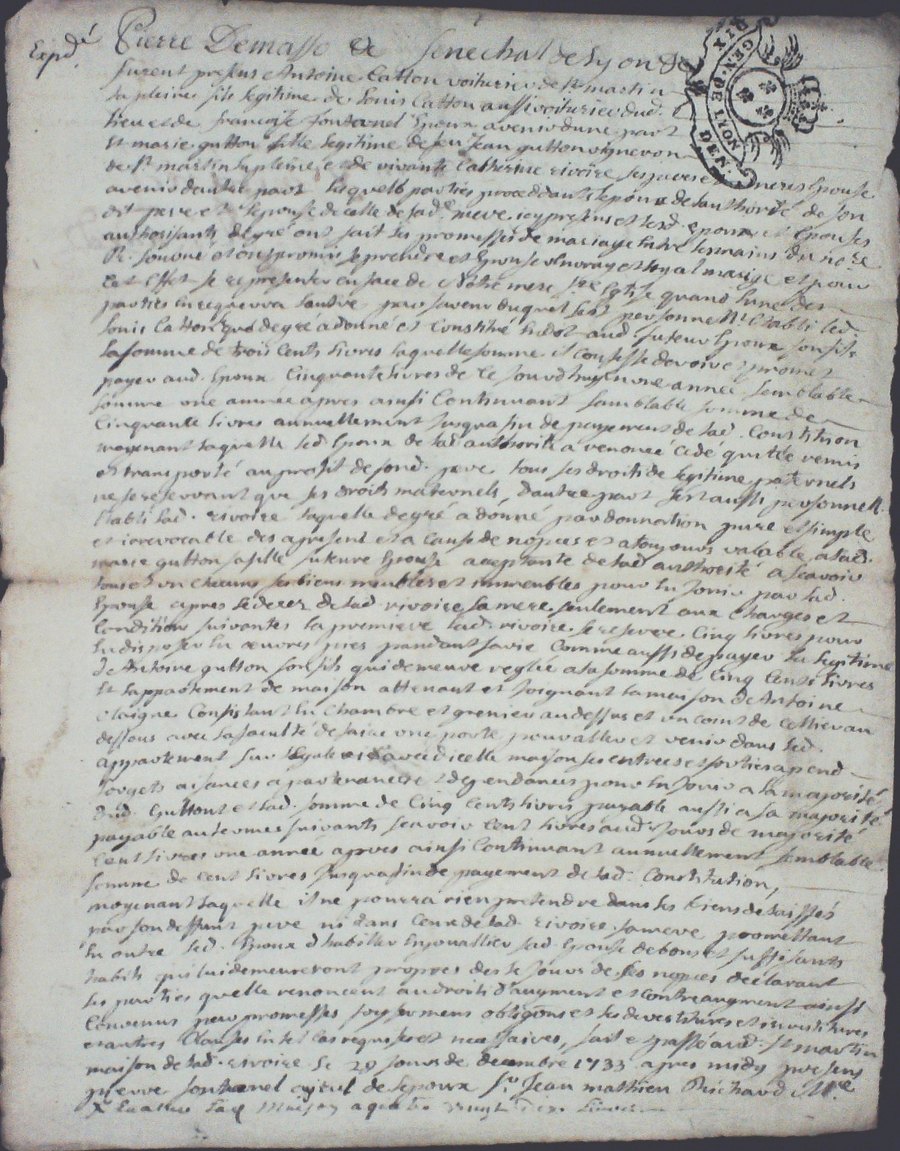 Expd.é
Pierre Demasso de Senechal de Lyon &
DIX
GEN. DE LYON
DEN.
furent presens Antoine Catton voiturier de st martin
la pleine fils legitime de Louis Catton aussi voiturier dud.
lieu et de françoise fontanel Epoux avenir dune part
Et marie gutton fille legitime de feu jean gutton vigneron
de st martin la pleine et de vivante Catherine rivoire ses pere et mere Epouse
avenir dautre part lesquels parties procedants lepoux de lauthorité de son
dit pere et lepouse de celle de sad.e mere icy presens et led. epoux et epouse
authorisants de gré ont fait les promesses de mariage entre les mains du nore
Rl. sousné et ont promis se prendre et Epouser en vray et loyal mariage et pour
cet Effet se representer en face de Notre mere ste Eglise quand lune des
parties en requerra lautre par faveur duquel sest personnellt. Etabli led.
Louis Catton de gré a donné et constitué en dot aud. futeur Epoux son fils
la somme de trois cents livres laquelle somme il confesse devoir et promet
payer aud. Epoux Cinquante livres de ce jourdhuy en une année semblable
somme une année apres ainsi Continuant semblable somme de
Cinquante livres annuellement jusqua fin de payement de lad. Constitution
moyenant laquelle led. Epoux de lad. authorité a renoncé cedé quitté remis
et transporté au profit de sond. pere tous ses droits de legitime paternels
ne se reservant que ses droits maternels, dautre part sest aussi personnellt.
Etabli lad. rivoire laquelle de gré a donné par donnation pure et simple
et irrevocable des a present et a cause de nopces et a toujours valable a lad.
marie gutton sa fille futeure Epouse aceptante de lad. authorité a scavoir
tous et un chacuns ses biens meubles et immeubles pour en jouir par lad.
Epouse apres le deces de lad. rivoire sa mere seulement aux charges et
Conditions suivantes la premiere lad. rivoire se reserve Cinq livres pour
en disposer en œuvres pies pandant sa vie Comme aussi de payer la legitime
de Antoine gutton son fils qui demeure reglée a la somme de Cinq Cents livres
Et lappartement de maison attenant et joignant la maison de Antoine
Consistant en chambre et grenier au dessus et un coint de cellier au
dessous avec la faculté de faire une porte pour aller et venir dans led.
appartement sur icelle maison ses entrées et sorties apend
aisances apartenances et dependances pour en jouir a la majorité
dud. Gutton et lad. somme de Cinq Cents livres payable aussi a sa majorité
payable au termes suivants scavoir Cent livres aud. jours de majorité
Cent livres une année apres ainsi Continuant annuellement semblable
somme de cent livres jusqua fin de payement de lad. Constitution,
moyenant laquelle il ne pourra rien pretendre dans les biens delaissés
par son deffunt pere ni dans Ceux de lad. rivoire sa mere promettant
En outre led. Epoux dhabiller Enjouallier lad. Epouse de bons et suffisants
habits qui lui demeureront propres des le jours de ses nopces declarant
les parties quelle renoncent au droits daugment et contreaugment ainsi
Convenus par promesses sermens obligons et les devestitures et investitures
et autres Clauses en tel Cas requises et necessaires, fait et passé aud. st martin
maison de lad. rivoire le 28 jours de decembre 1733 apres midy presens
pierre fontanel ayeul de lepoux sr Jean mathieu Richard Me.
maison a quatre vingt dix livres